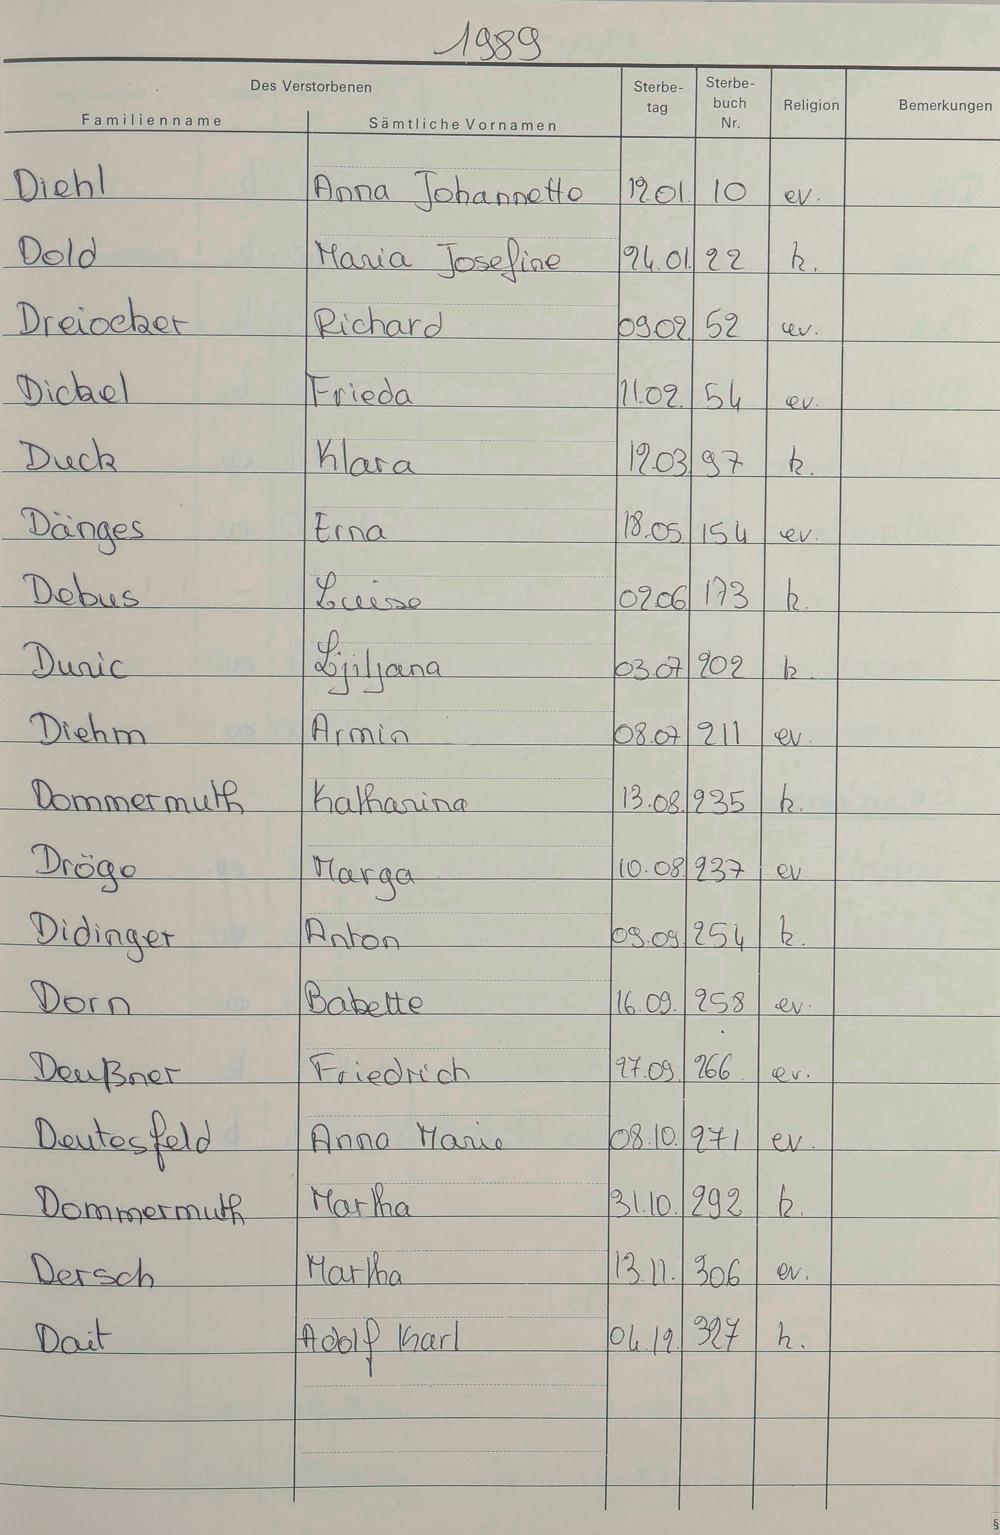 1989
Des Verstorbenen
Familienname Sämtliche Vornamen Sterbe-tag Sterbe-buch Nr. Religion Bemerkungen
Diehl Anna Johannette 12.01. 10 ev.
Dold Maria Josefine 24.01. 22 k.
Dreiocker Richard 09.02. 52 ev.
Dickel Frieda 11.02. 54 ev.
Duck Klara 12.03 97 k.
Dänges Erna 18.05. 154 ev.
Debus Luise 02.06 173 k.
Duric Ljiljana 03.07 202 k
Diehm Armin 08.07 211 ev.
Dommermuth Katharina 13.08. 235 k.
Dröge Marga 10.08. 237 ev.
Didinger Anton 09.09. 254 k.
Dorn Babette 16.09. 258 ev.
Deußner Friedrich 27.09. 266 ev.
Deutesfeld Anna Marie 08.10. 271 ev.
Dommermuth Martha 31.10. 292 k.
Dersch Martha 13.11. 306 ev.
Dait Adolf Karl 04.12. 327 k.